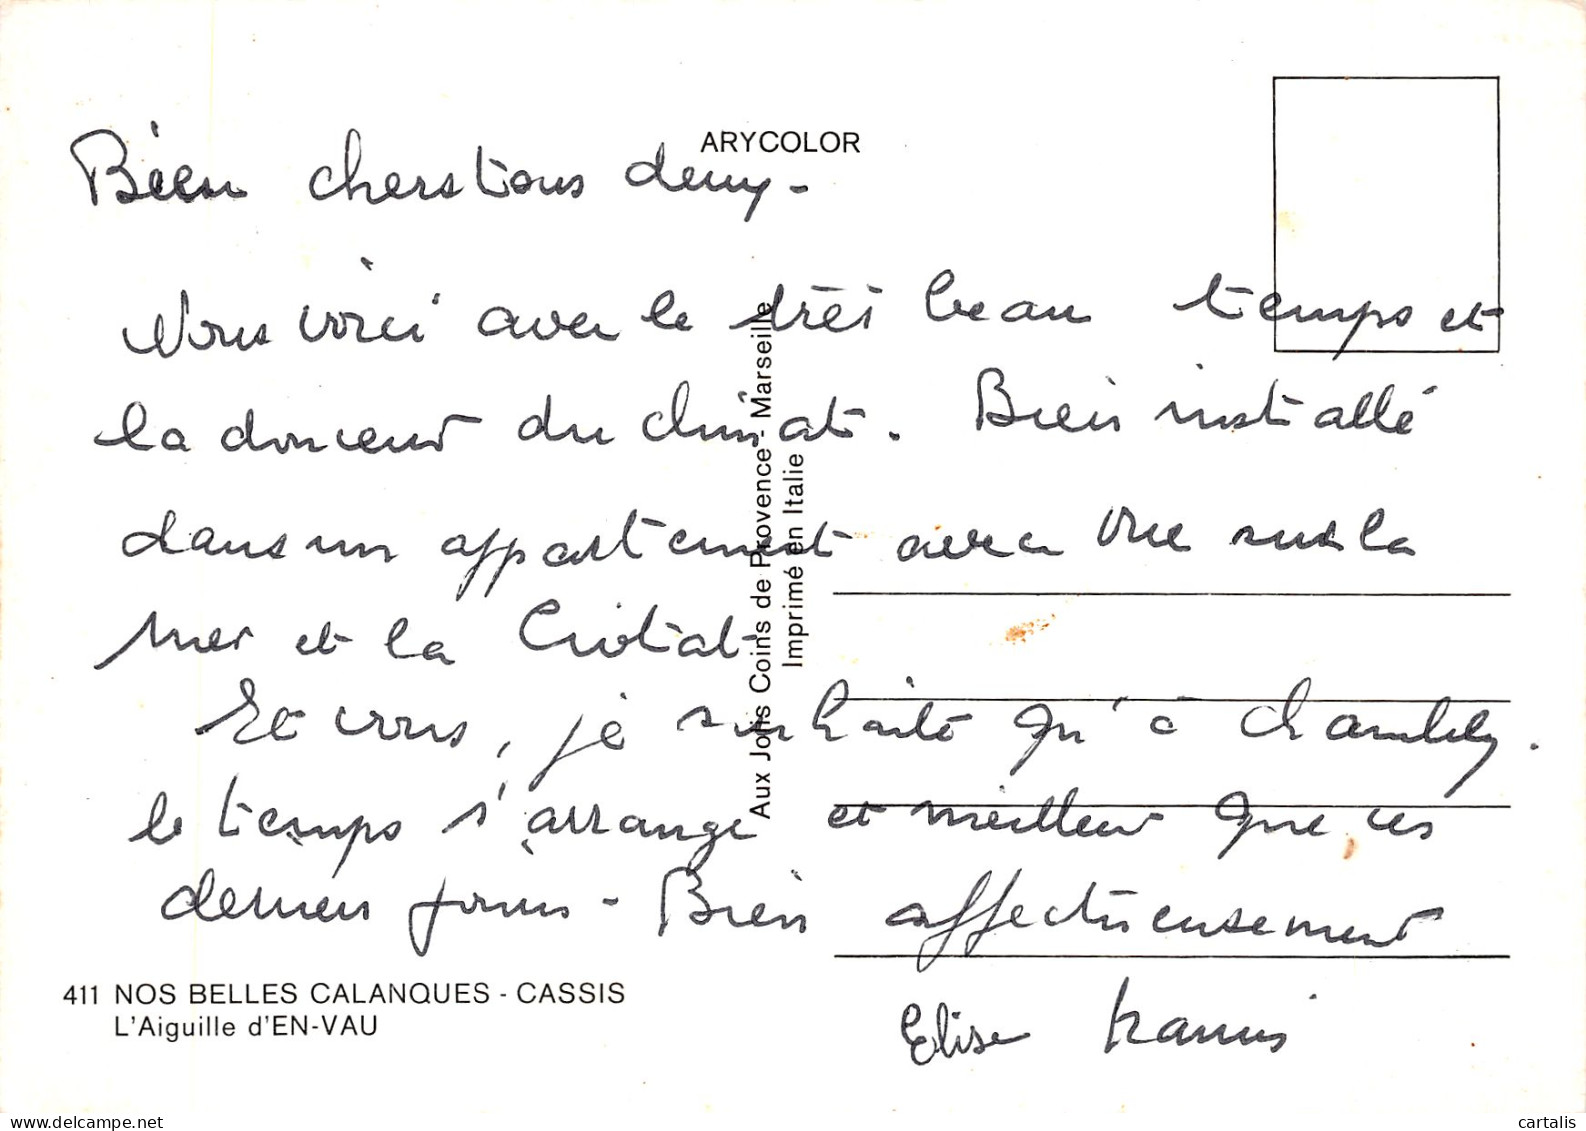 ARYCOLOR
Bien chers tous deux -
Nous voici avec le très beau temps et
la douceur du climat. Bien installé
dans un appartement avec vue sur la
mer et la Ciotat
Et vous, je souhaite qu'à Chambly.
le temps s'arrange et meilleur que ces
derniers jours - Bien affectueusement
Elise
Aux Jolis Coins de Provence - Marseille
Imprimé en Italie
411 NOS BELLES CALANQUES - CASSIS
L'Aiguille d'EN-VAU
delcampe.net
cartalis